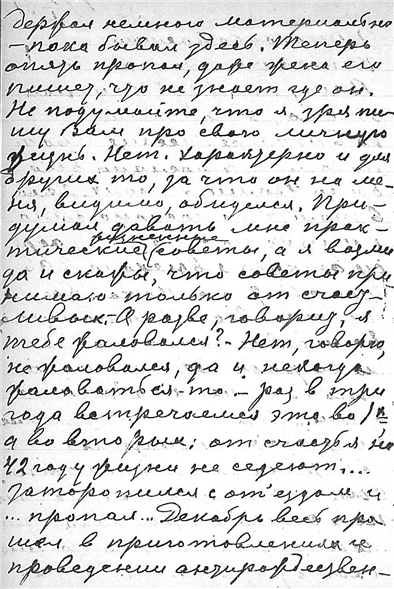 держал немного материально
– пока бывал здесь. Теперь
опять пропал, даже жена его
пишет, что не знает где он.
Не подумайте, что я зря пи-
шу Вам про свою личную
жизнь. Нет. Характерно и для
других то, за что он на ме-
ня, видимо, обиделся. При-
думал давать мне прак-
жизненные
тические советы, а я возьми
да и скажи, что советы при
нимаю только от счаст-
ливых. А разве, говорит, я
тебе жаловался? – Нет, говорю,
не жаловался, да и некогда
жаловаться-то – раз в три
года встречаемся это во 1х
а во вторых: от счастья на
42 году жизни не седеют...
заторопился с от'ездом и
... пропал... Декабрь весь про
шел в приготовлениях и
проведении антирождествен-